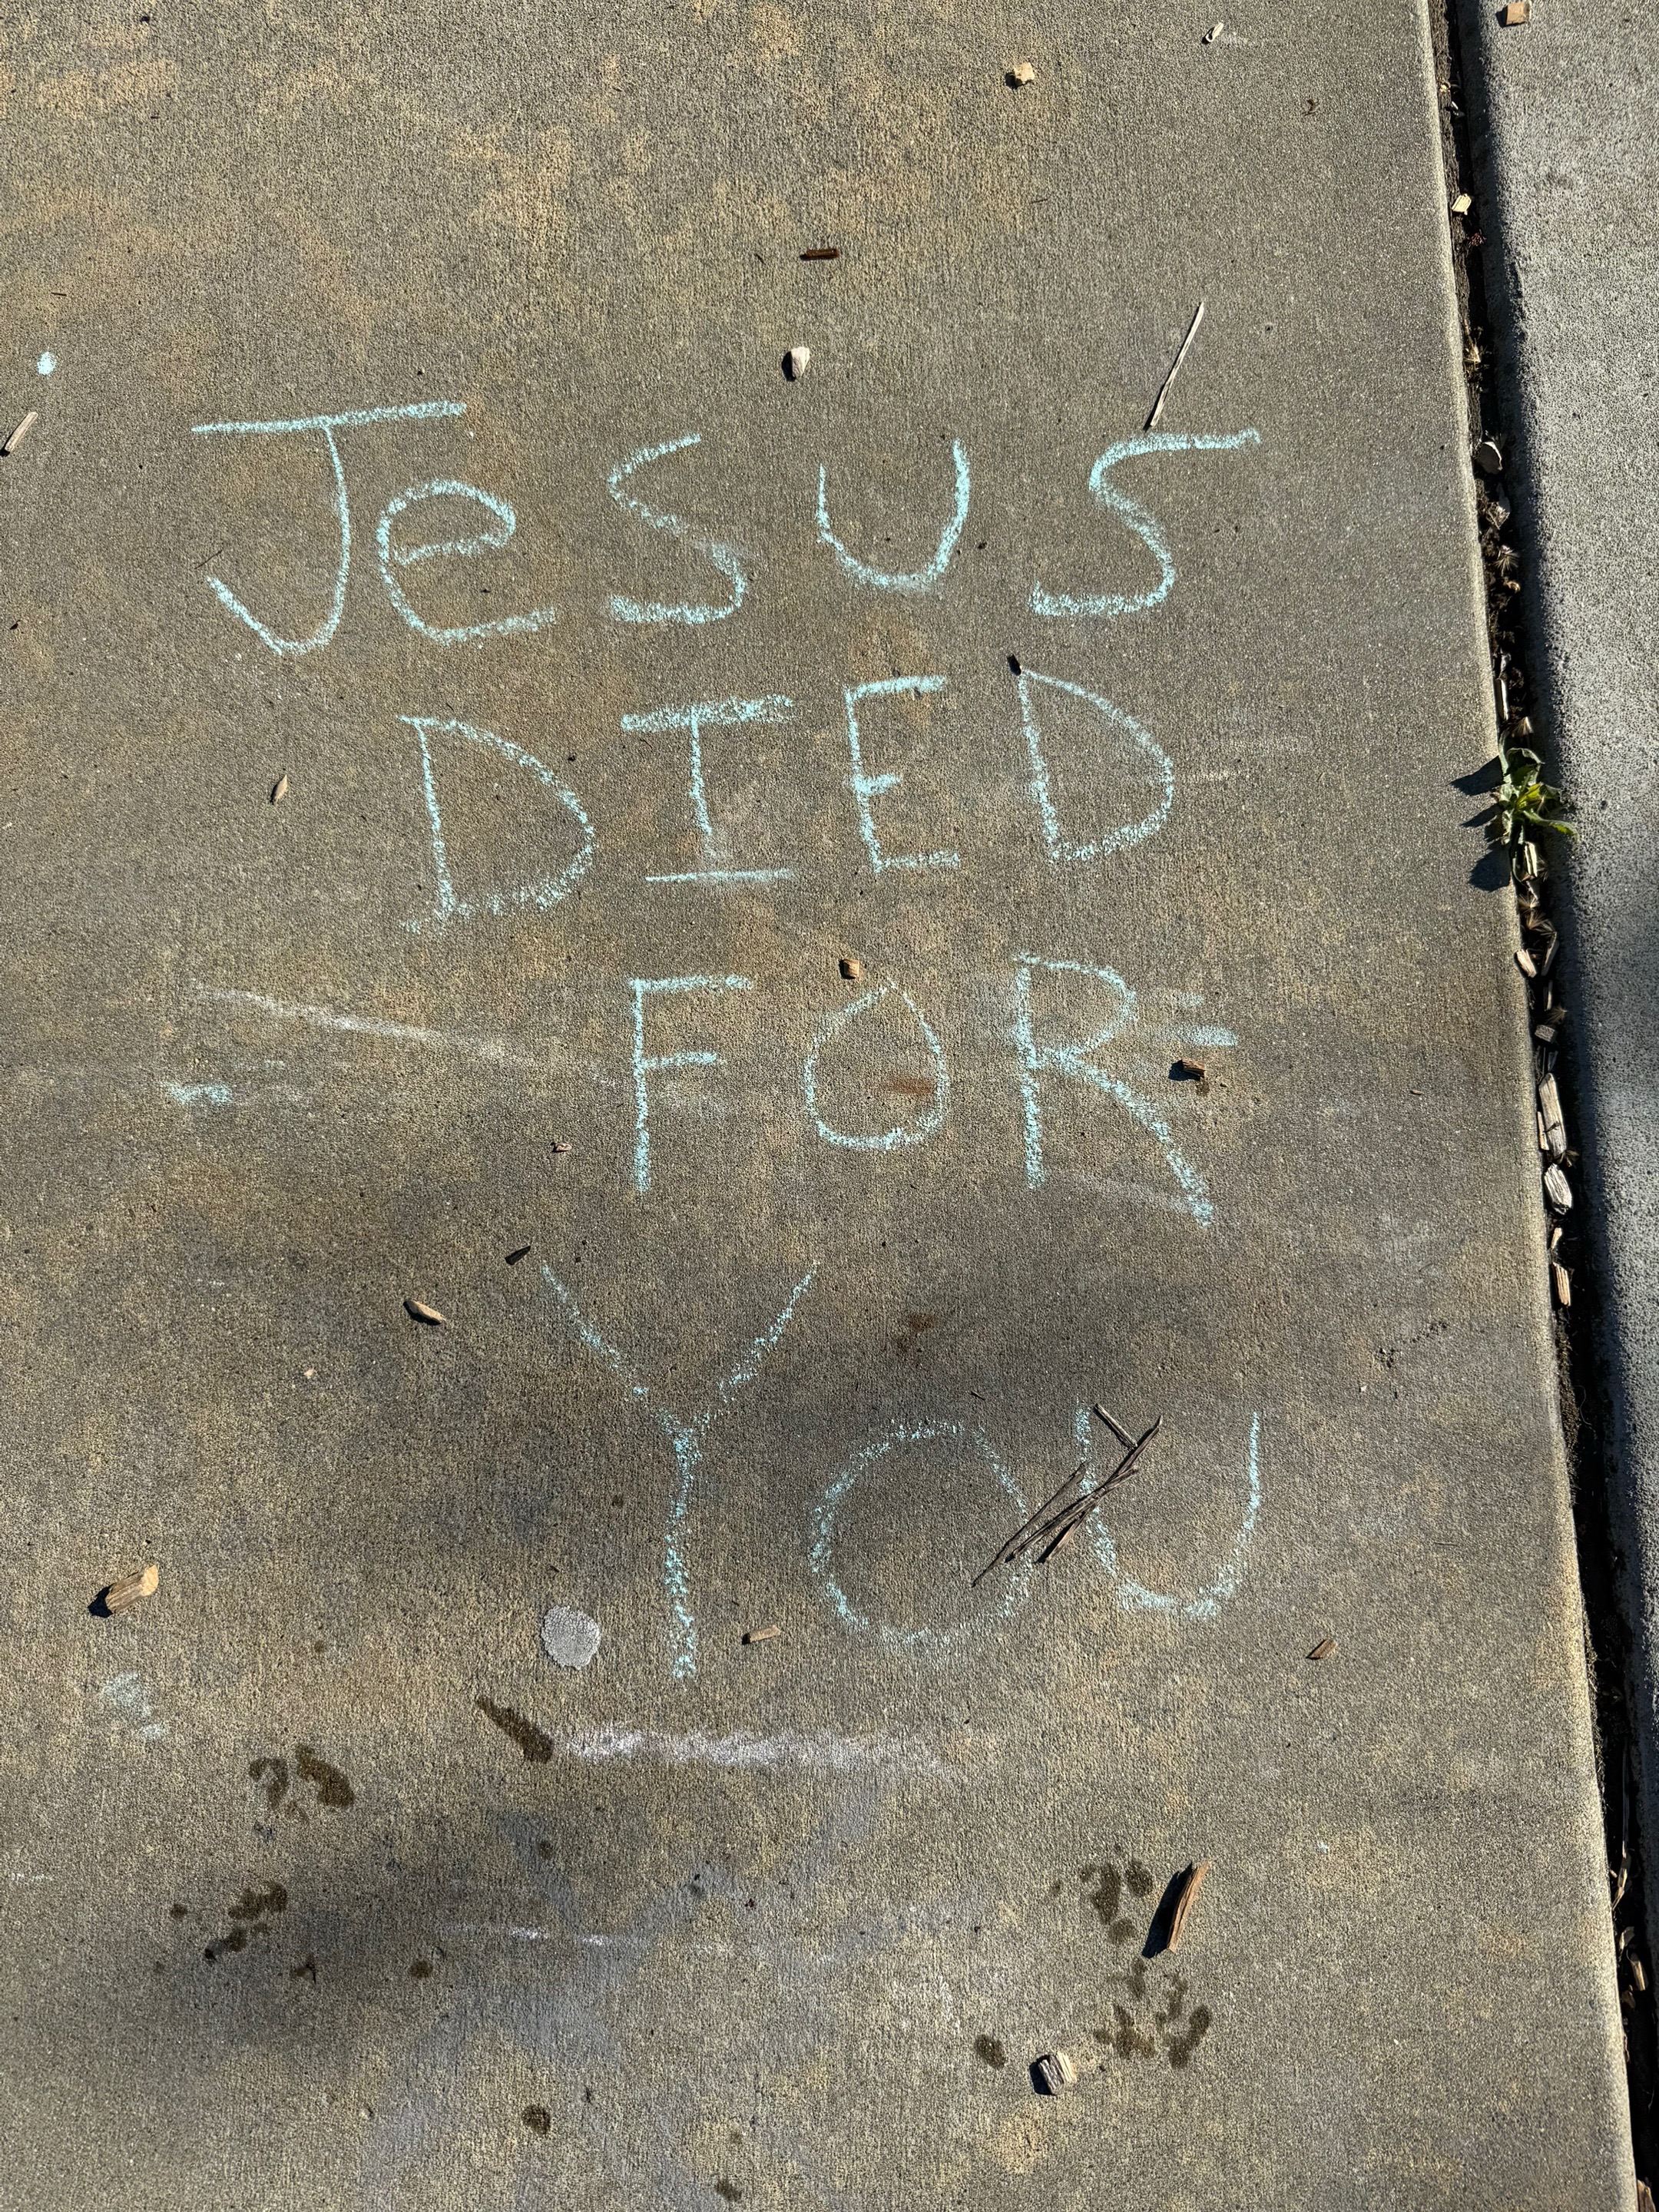 JeSUS
DIED
FOR
YOU